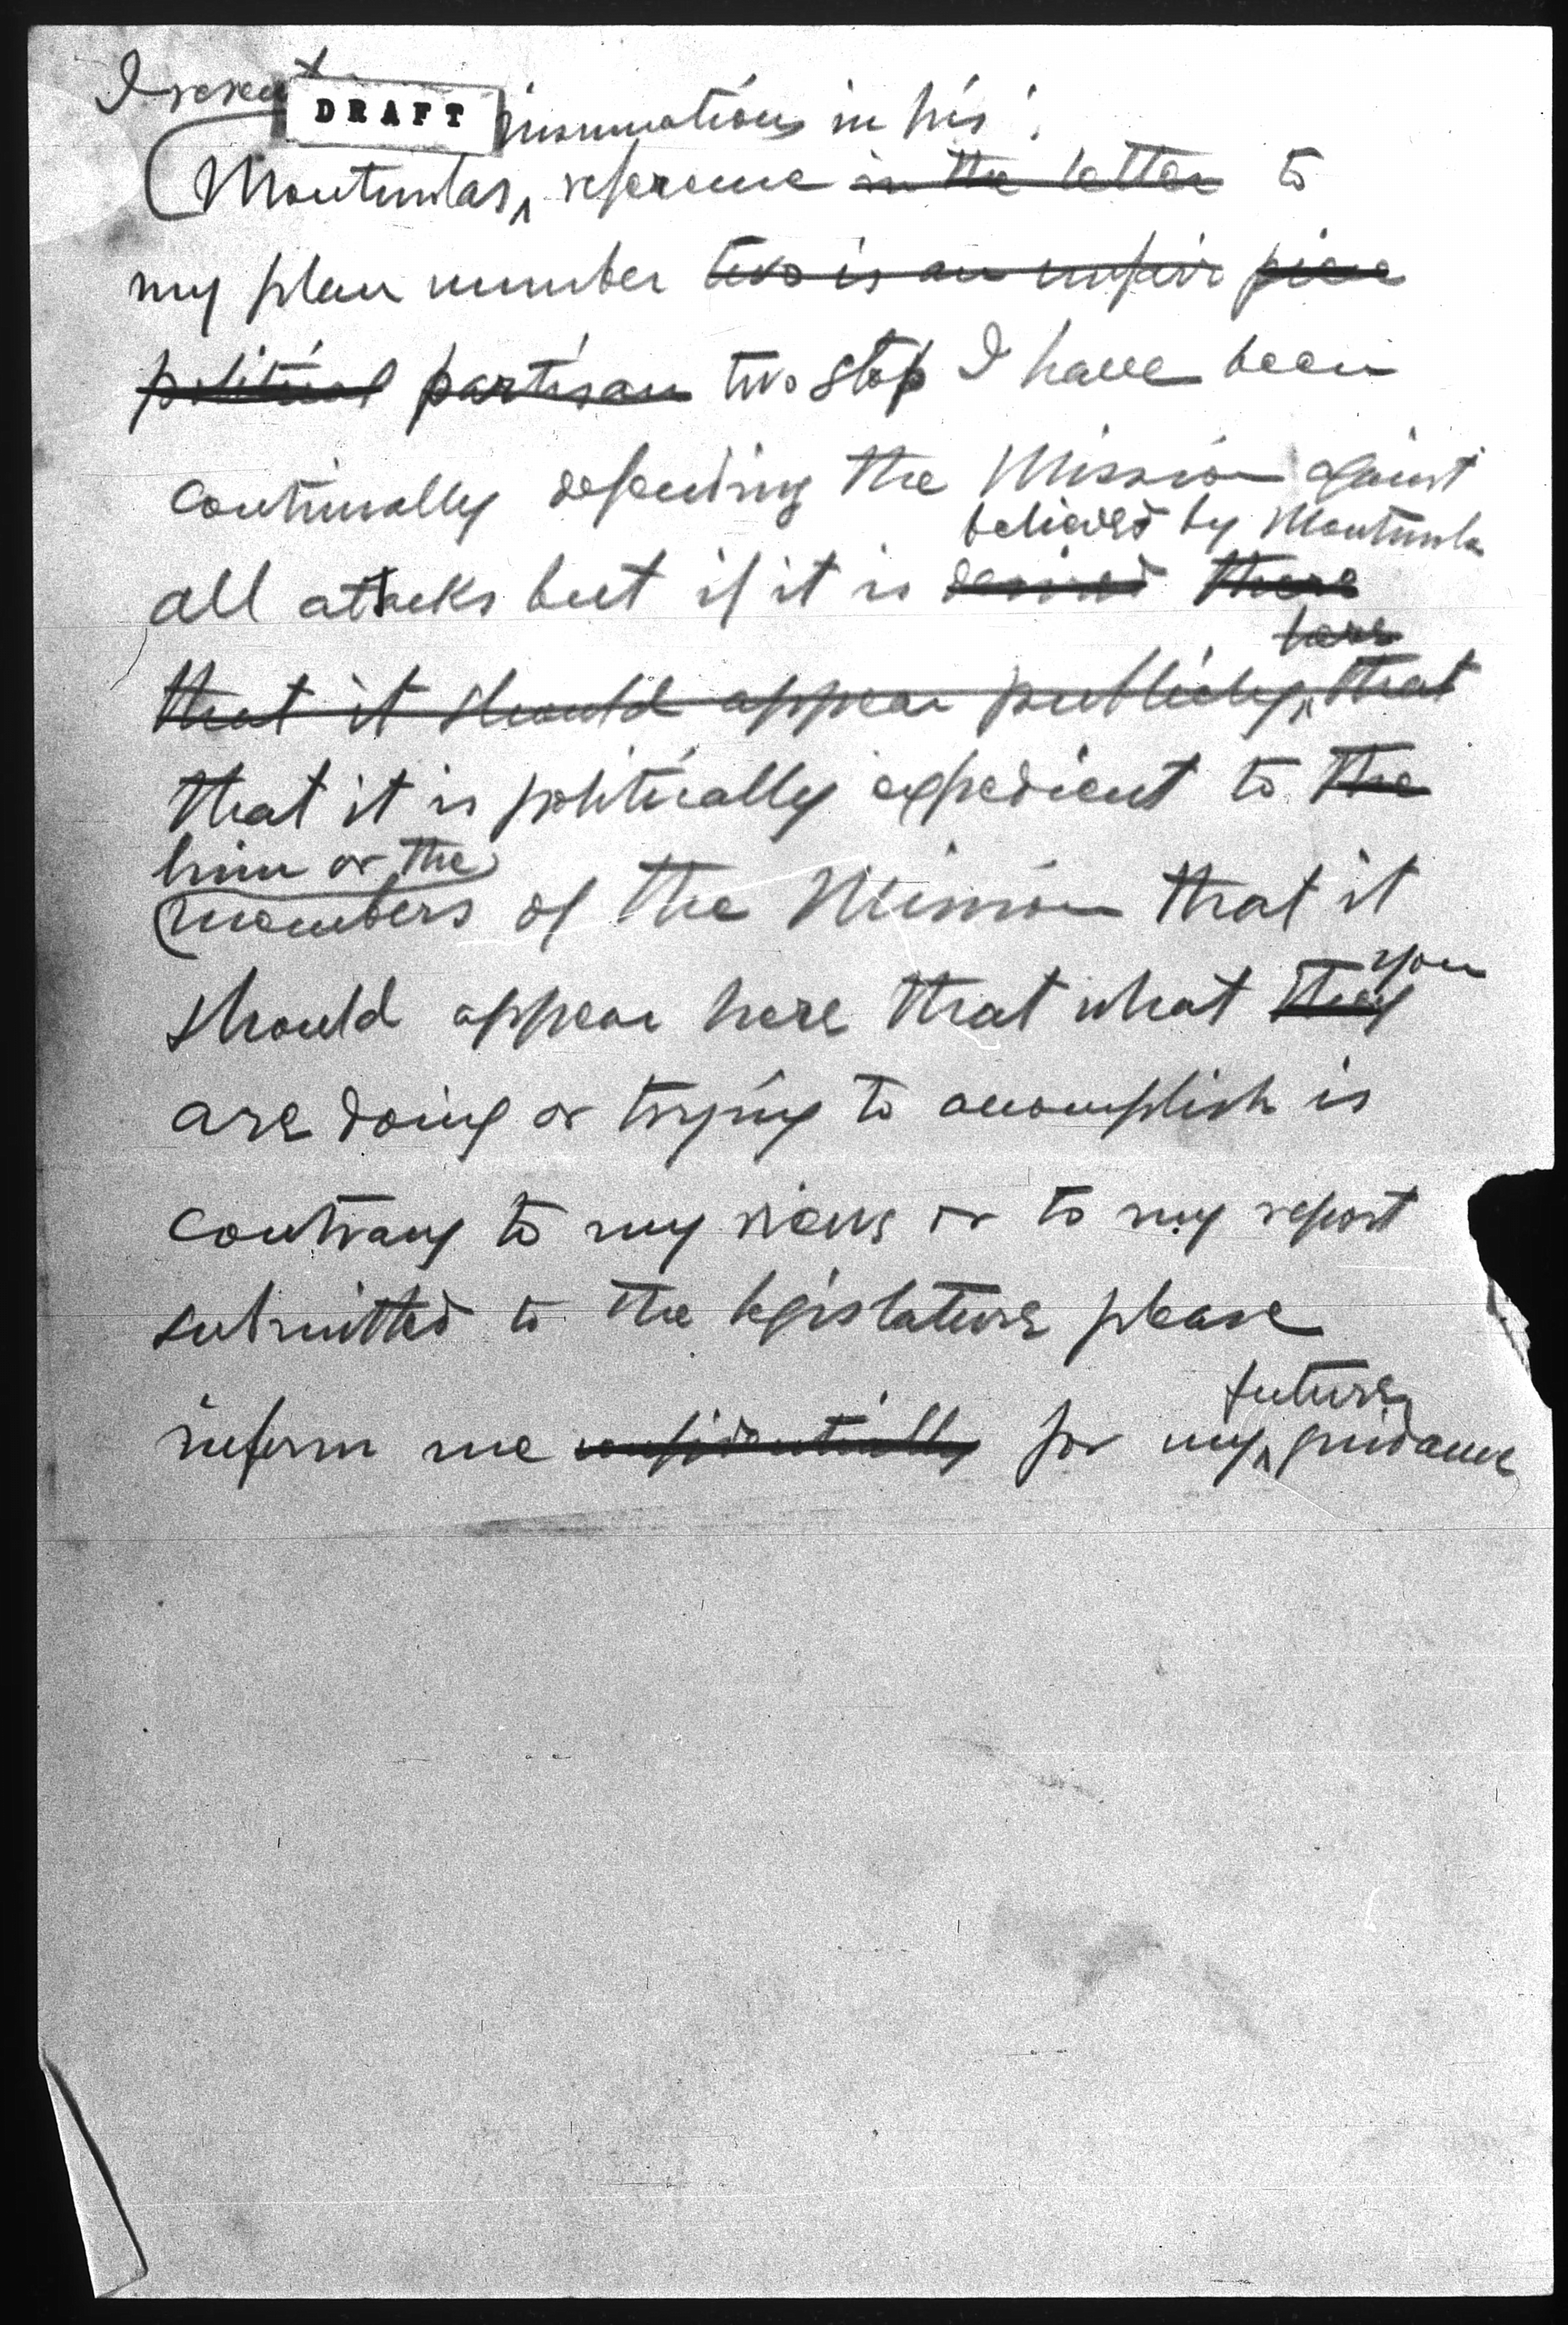 I resent
DRAFT
insinuations in his
Montinolas reference in the letter to
my plan number two is an unfair piece
political partisan two stop I have been
continually defending the Mission against
believed by Montinola
all attacks but if it is desired there
here
that it should appear publicly that
that it is politically expedient to the
him or the
members of the Mission that it
you
should appear here that what they
are doing or trying to accomplish is
contrary to my views or to my report
submitted to the legislature please
future
inform me confidentially for my guidance